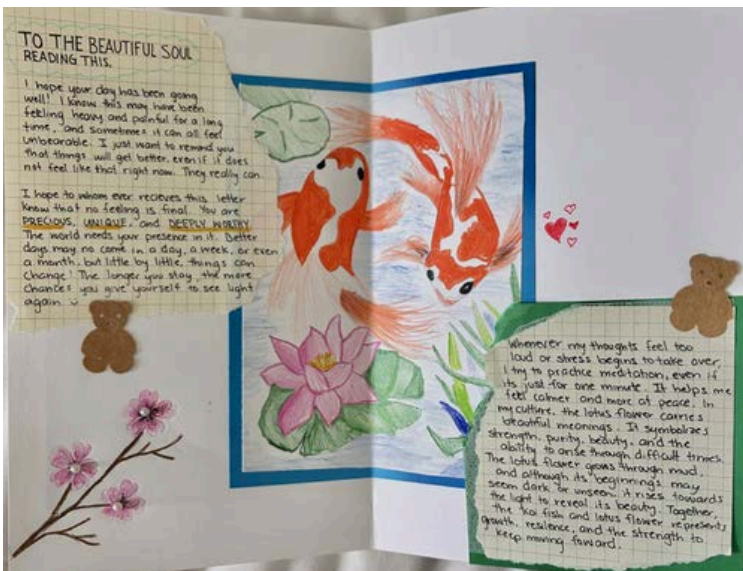 TO THE BEAUTIFUL SOUL
READING THIS.
I hope your day has been going
well! I know this may have been
feeling heavy and painful for a long
time, and sometimes it can all feel
unbearable. I just want to remind you
that things will get better, even if it does
not feel like that right now. They really can.
I hope to whom ever recieves this letter
know that no feeling is final. You are
PRECIOUS, UNIQUE, and DEEPLY WORTHY.
The world needs your presence in it. Better
days may no come in a day, a week, or even
a month, but little by little, things can
change! The longer you stay, the more
chances you give yourself to see light
again
Whenever my thoughts feel too
loud or stress begins to take over,
I try to practice meditation, even if
its just for one minute. It helps me
feel calmer and more at peace. In
my culture, the lotus flower carries
beautiful meanings. It symbolizes
strength, purity, beauty, and the
ability to arise through difficult times.
The lotus flower grows through mud,
and although its beginnings may
seem dark or unseen, it rises towards
the light to reveal its beauty. Together,
the koi fish and lotus flower represents
growth, resilence, and the strength to
keep moving foward.